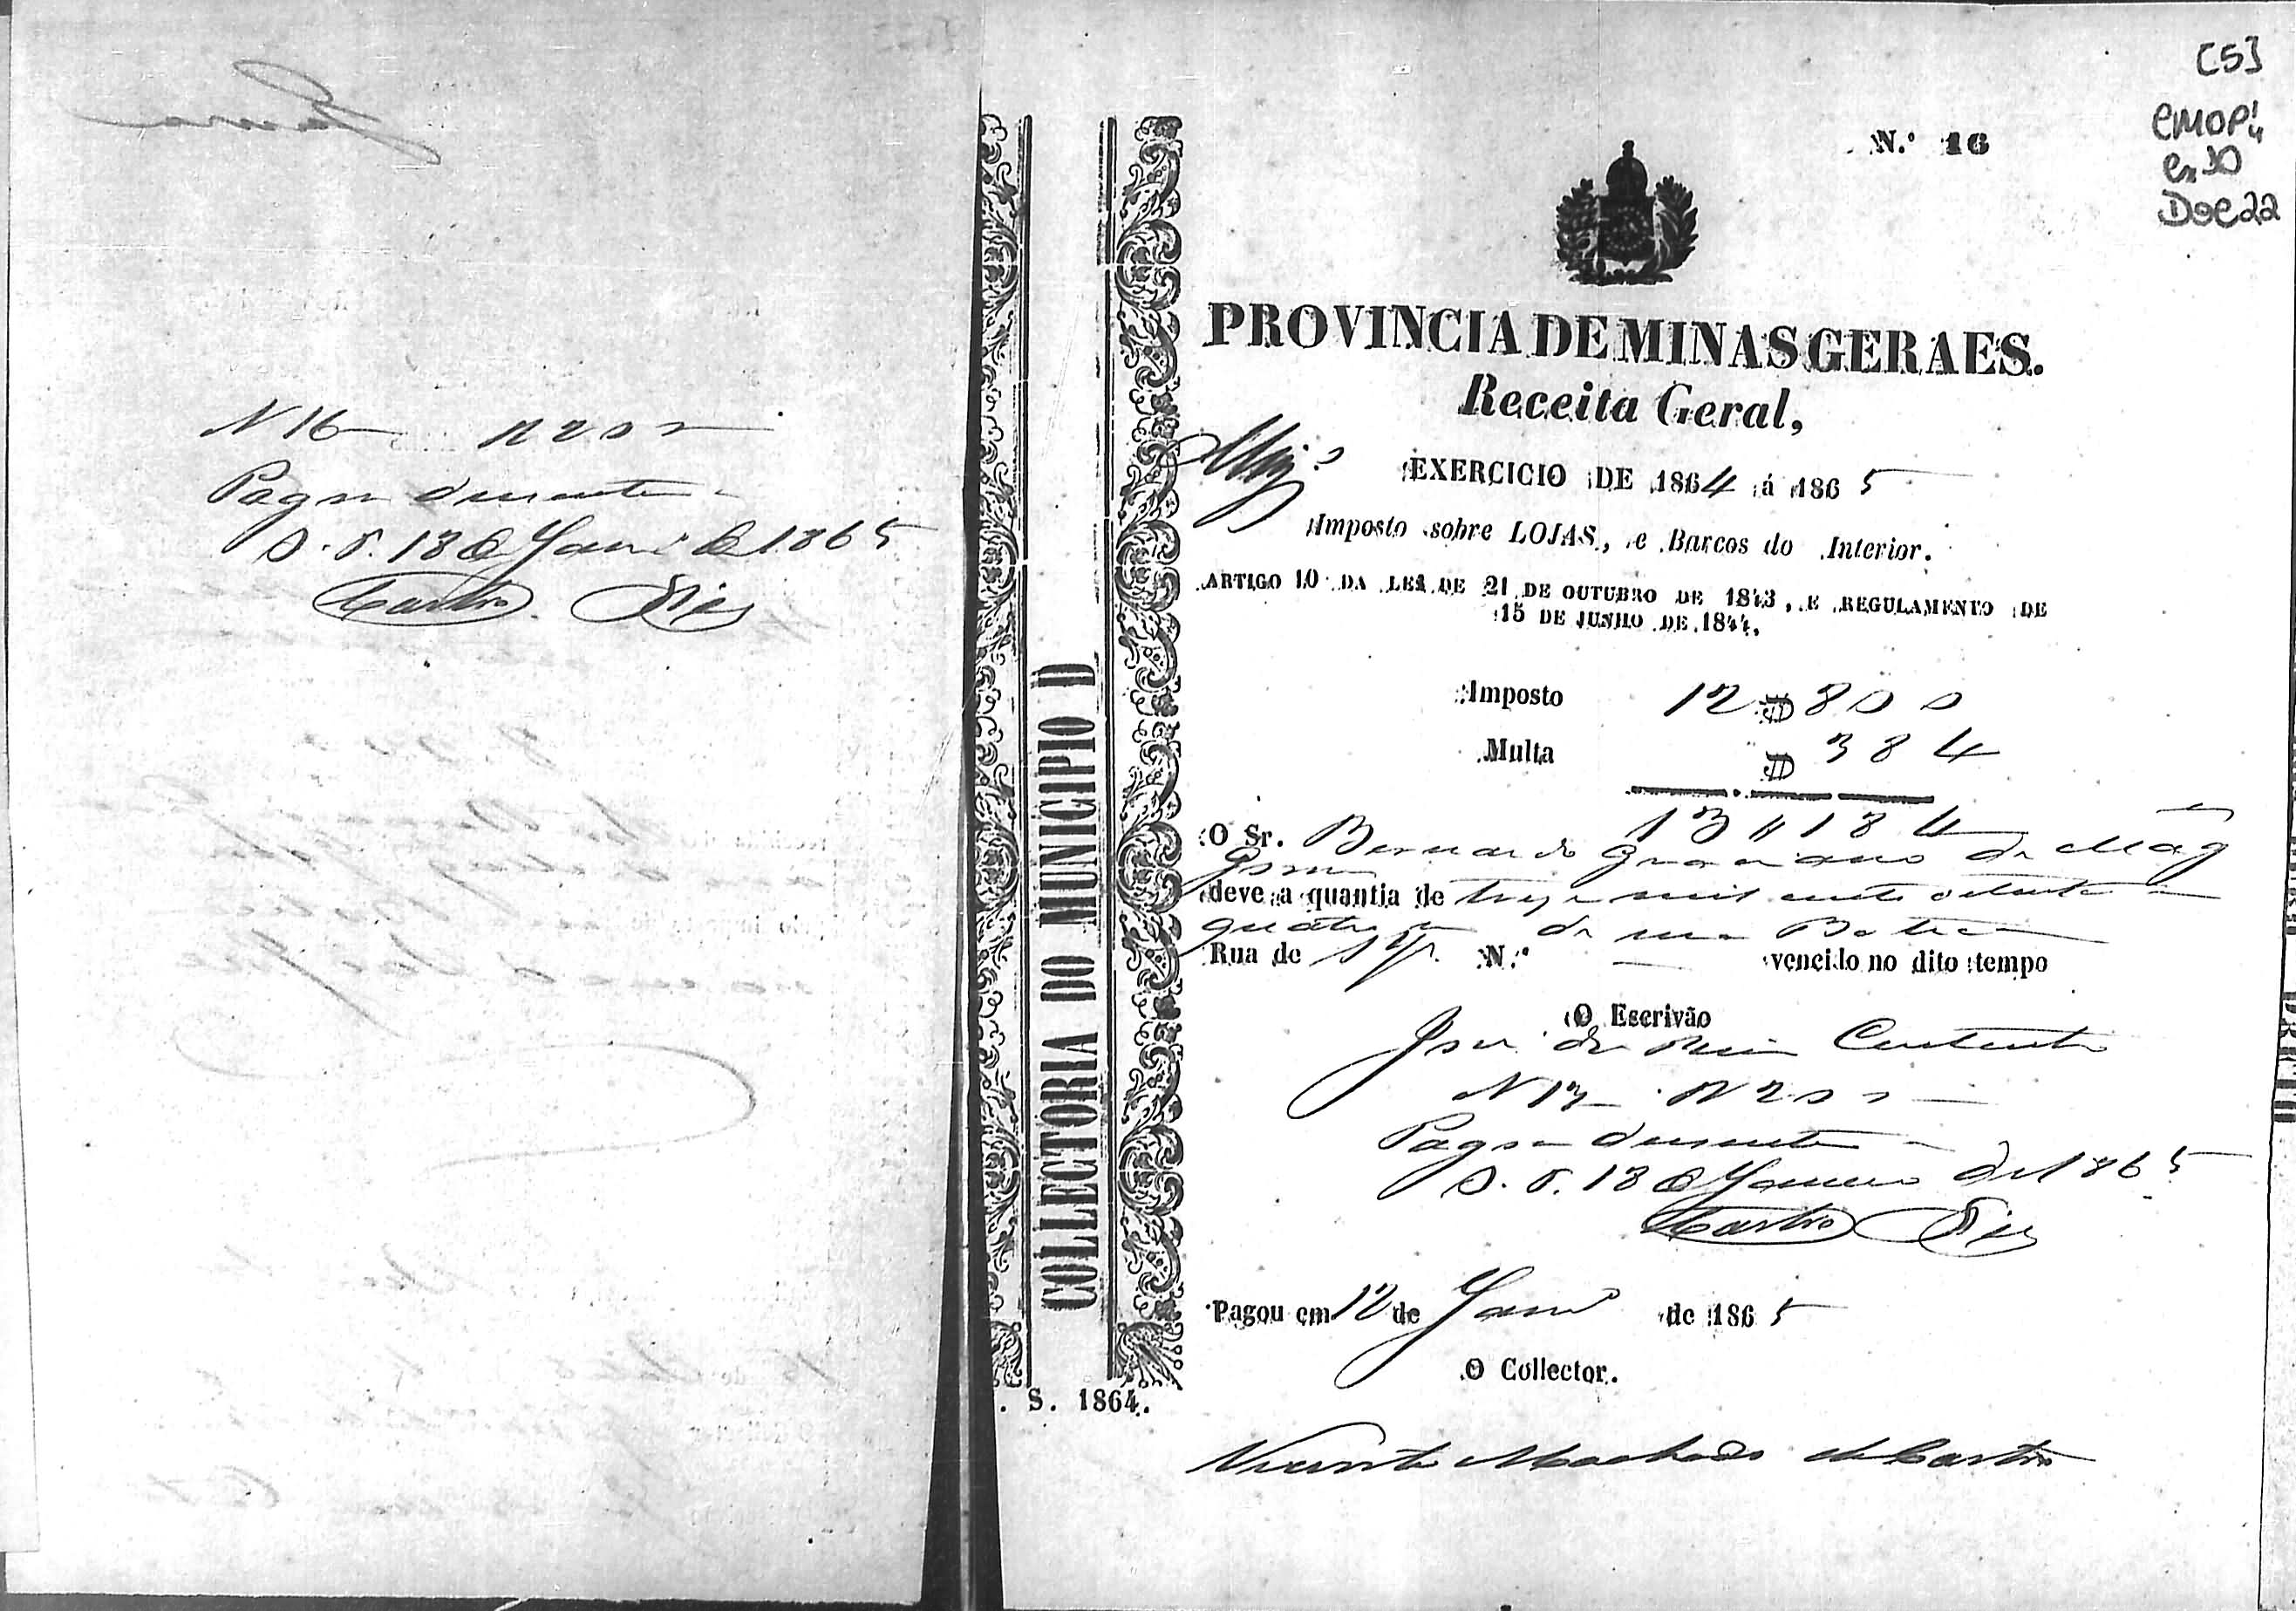 N 16 N 200
Pag duzentos
S. P. 18 de Janr.º de 1865
Castro Dias
[5]
CMOP
Cx 10
Doc 22
N.º 16
PROVINCIA DE MINAS GERAES.
Receita Geral,
EXERCICIO DE 1864 á 1865
Imposto sobre LOJAS, e Barcos do Interior.
ARTIGO 10 DA LEI DE 21 DE OUTUBRO DE 1843, E REGULAMENTO DE
15 DE JUNHO DE 1844.
Imposto 12$800
Multa $384
13$184
O Sr. Bernardo de Mag
deve a quantia de treze mil cento oitenta e
quatro rs de uma Botica
Rua de N.º — vencido no dito tempo
O Escrivão
José de
N 13 N 200
Pag duzentos
S. P. 18 de Janeiro de 1865
Castro Dias
Pagou em 12 de Janr.º de 1865
O Collector.
Vicente Machado de Castro
COLLECTORIA DO MUNICIPIO D
. S. 1864.